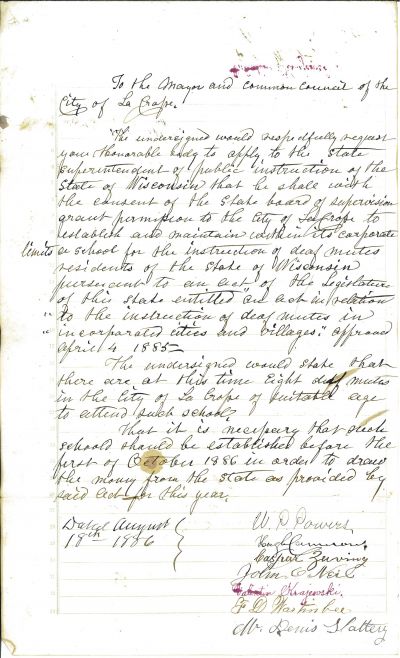 To the Mayor and common council of the
City of La Crosse.
The undersigned would respectfully request
your Honorable body to apply to the State
superintendent of public instruction of the
State of Wisconsin that he shall with
the consent of the State board of supervision
grant permission to the City of La Crosse to
establish and maintain within its corporate
limits a school for the instruction of deaf mutes
residents of the State of Wisconsin
pursuant to an act of the Legislature
of this State entitled "an act in relation
" to the instruction of deaf mutes in
" incorporated cities and villages." approved
April 4 1885—
The undersigned would state that
there are at this time Eight deaf mutes
in the City of La Crosse of suitable age
to attend such school,
That it is necessary that such
school should be established before the
first of October 1886 in order to draw
the money from the State as provided by
said act for this year.
Dated August
18th 1886
W. P. Powers
Hugh Cameron
John O'Neil
Krajewski.
F. D.
Mr. Denis Slattery